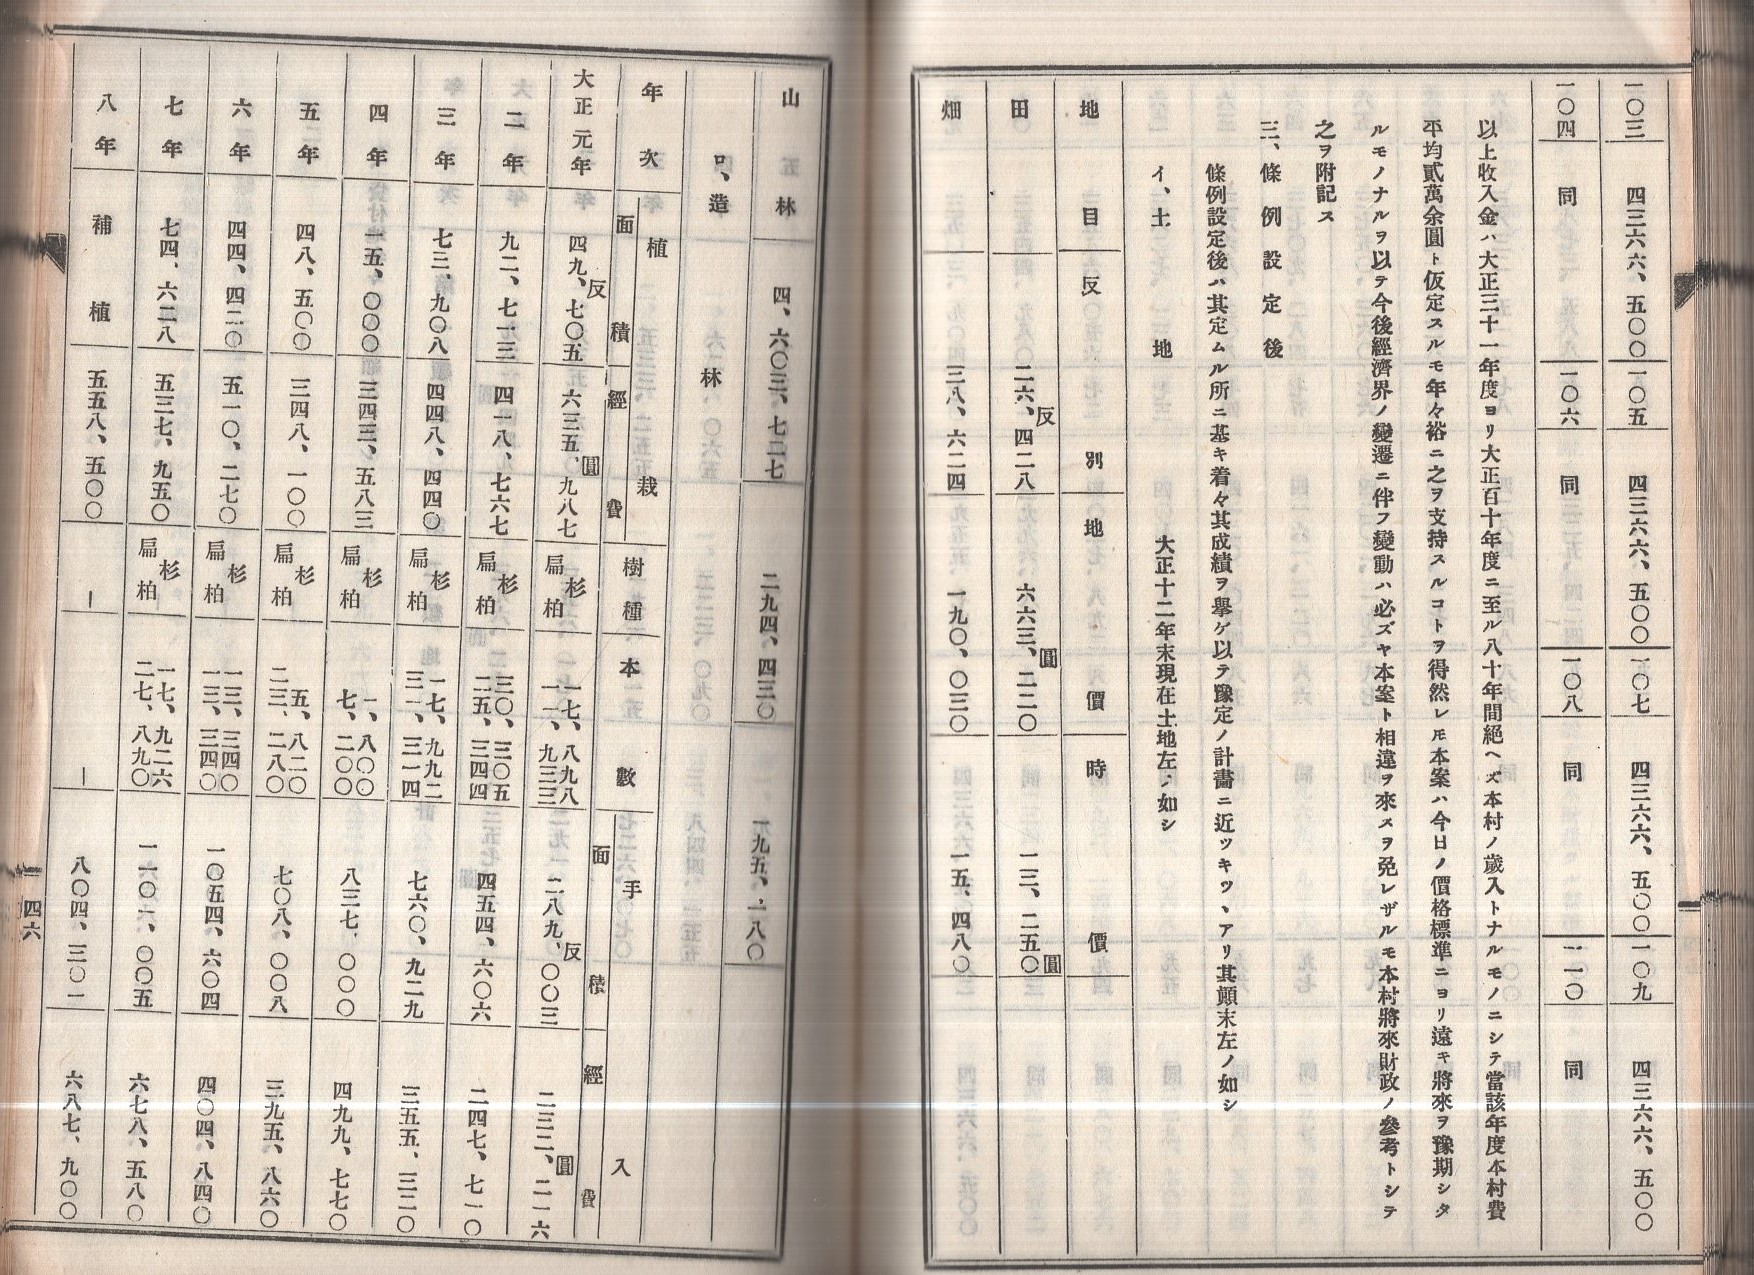 一〇三 四三六六、五〇〇 一〇五 四三六六、五〇〇 一〇七 四三六六、五〇〇 一〇九 四三六六、五〇〇
一〇四 同 一〇六 同 一〇八 同 一一〇 同
以上收入金ハ大正三十一年度ヨリ大正百十年度ニ至ル八十年間絕ヘズ本村ノ歲入トナルモノニシテ當該年度本村費
平均貳萬余圓ト仮定スルモ年々裕ニ之ヲ支持スルコトヲ得然レモ本案ハ今日ノ價格標準ニヨリ遠キ將來ヲ豫期シタ
ルモノナルヲ以テ今後經濟界ノ變遷ニ伴フ變動ハ必ズヤ本案ト相違ヲ來スヲ免レザルモ本村將來財政ノ參考トシテ
之ヲ附記ス
三、條例設定後
條例設定後ハ其定ムル所ニ基キ着々其成績ヲ擧ゲ以テ豫定ノ計畵ニ近ツキツヽアリ其顚末左ノ如シ
イ、土地 大正十二年末現在土地左ノ如シ
地目 反別 地價 時價
田 二六、四二八反 六六三、二二〇圓 一三、二五〇圓
畑 三八、六二四 一九〇、〇三〇 一五、四八〇
山林 四、六〇三、七二七 二九四、四三〇 一九五、一八〇
ロ、造林
年次 植栽 面積 經費 樹種 本數 手入 面積 經費
大正元年 四九、七〇五反 六三五、九八七圓 杉 扁柏 一七、八九八 一一、九三三 二八九、〇〇三反 二三二、二一六圓
二年 九二、七一三 四一八、七六七 杉 扁柏 三〇、三〇五 二五、三四四 四五四、六〇六 二四七、七一〇
三年 七三、九〇八 四四八、四四〇 杉 扁柏 一七、九九二 三一、三一四 七六〇、九二九 三五五、三二〇
四年 一五、〇〇〇 三四三、五八三 杉 扁柏 一、八〇〇 七、二〇〇 八三七、〇〇〇 四九九、七七〇
五年 四八、五〇〇 三四八、一〇〇 杉 扁柏 五、八二〇 二三、二八〇 七〇八、〇〇八 三九五、八六〇
六年 四四、四二〇 五一〇、二七〇 杉 扁柏 一三、三四〇 一三、三四〇 一〇五四、六〇四 四〇四、八四〇
七年 七四、六二八 五三七、九五〇 杉 扁柏 一七、九二六 二七、八九〇 一一〇一、〇〇五 六七八、五八〇
八年 補植 五五八、五〇〇 ー ー 八〇四、三〇一 六八七、九〇〇
四六